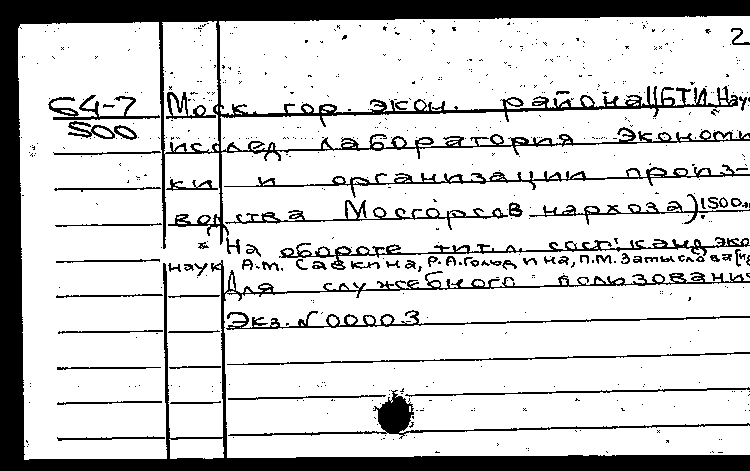 2
64-7 Моск. гор. экон. района ЦБТИ. Науч
500
исслед. лаборатория экономи
ки и организации произ-
водства Мосгорсовнархоза). 1500
* На обороте тит. л. сост.: канд. эко
наук А.М. Савкина, Р.А. Гольдина, П.М. Затыслова
Для служебного пользования
Экз. № 00003